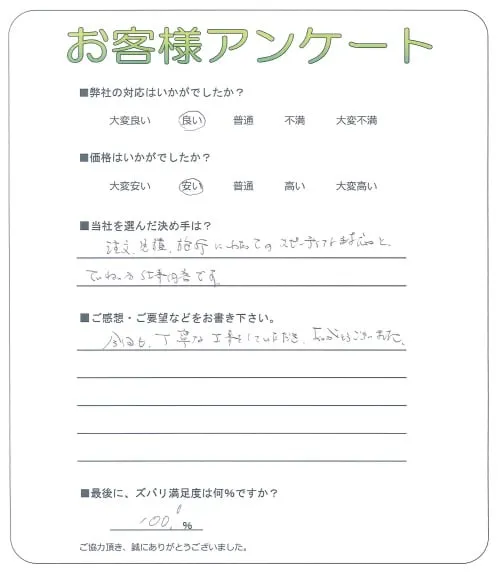 お客様アンケート
■弊社の対応はいかがでしたか？
大変良い 良い 普通 不満 大変不満
■価格はいかがでしたか？
大変安い 安い 普通 高い 大変高い
■当社を選んだ決め手は？
注文、見積、施行にわたってのスピーディな対応と、
ていねいな仕事内容です。
■ご感想・ご要望などをお書き下さい。
今回も、丁寧な工事をしていただき、ありがとうございました。
■最後に、ズバリ満足度は何％ですか？
100 %
ご協力頂き、誠にありがとうございました。